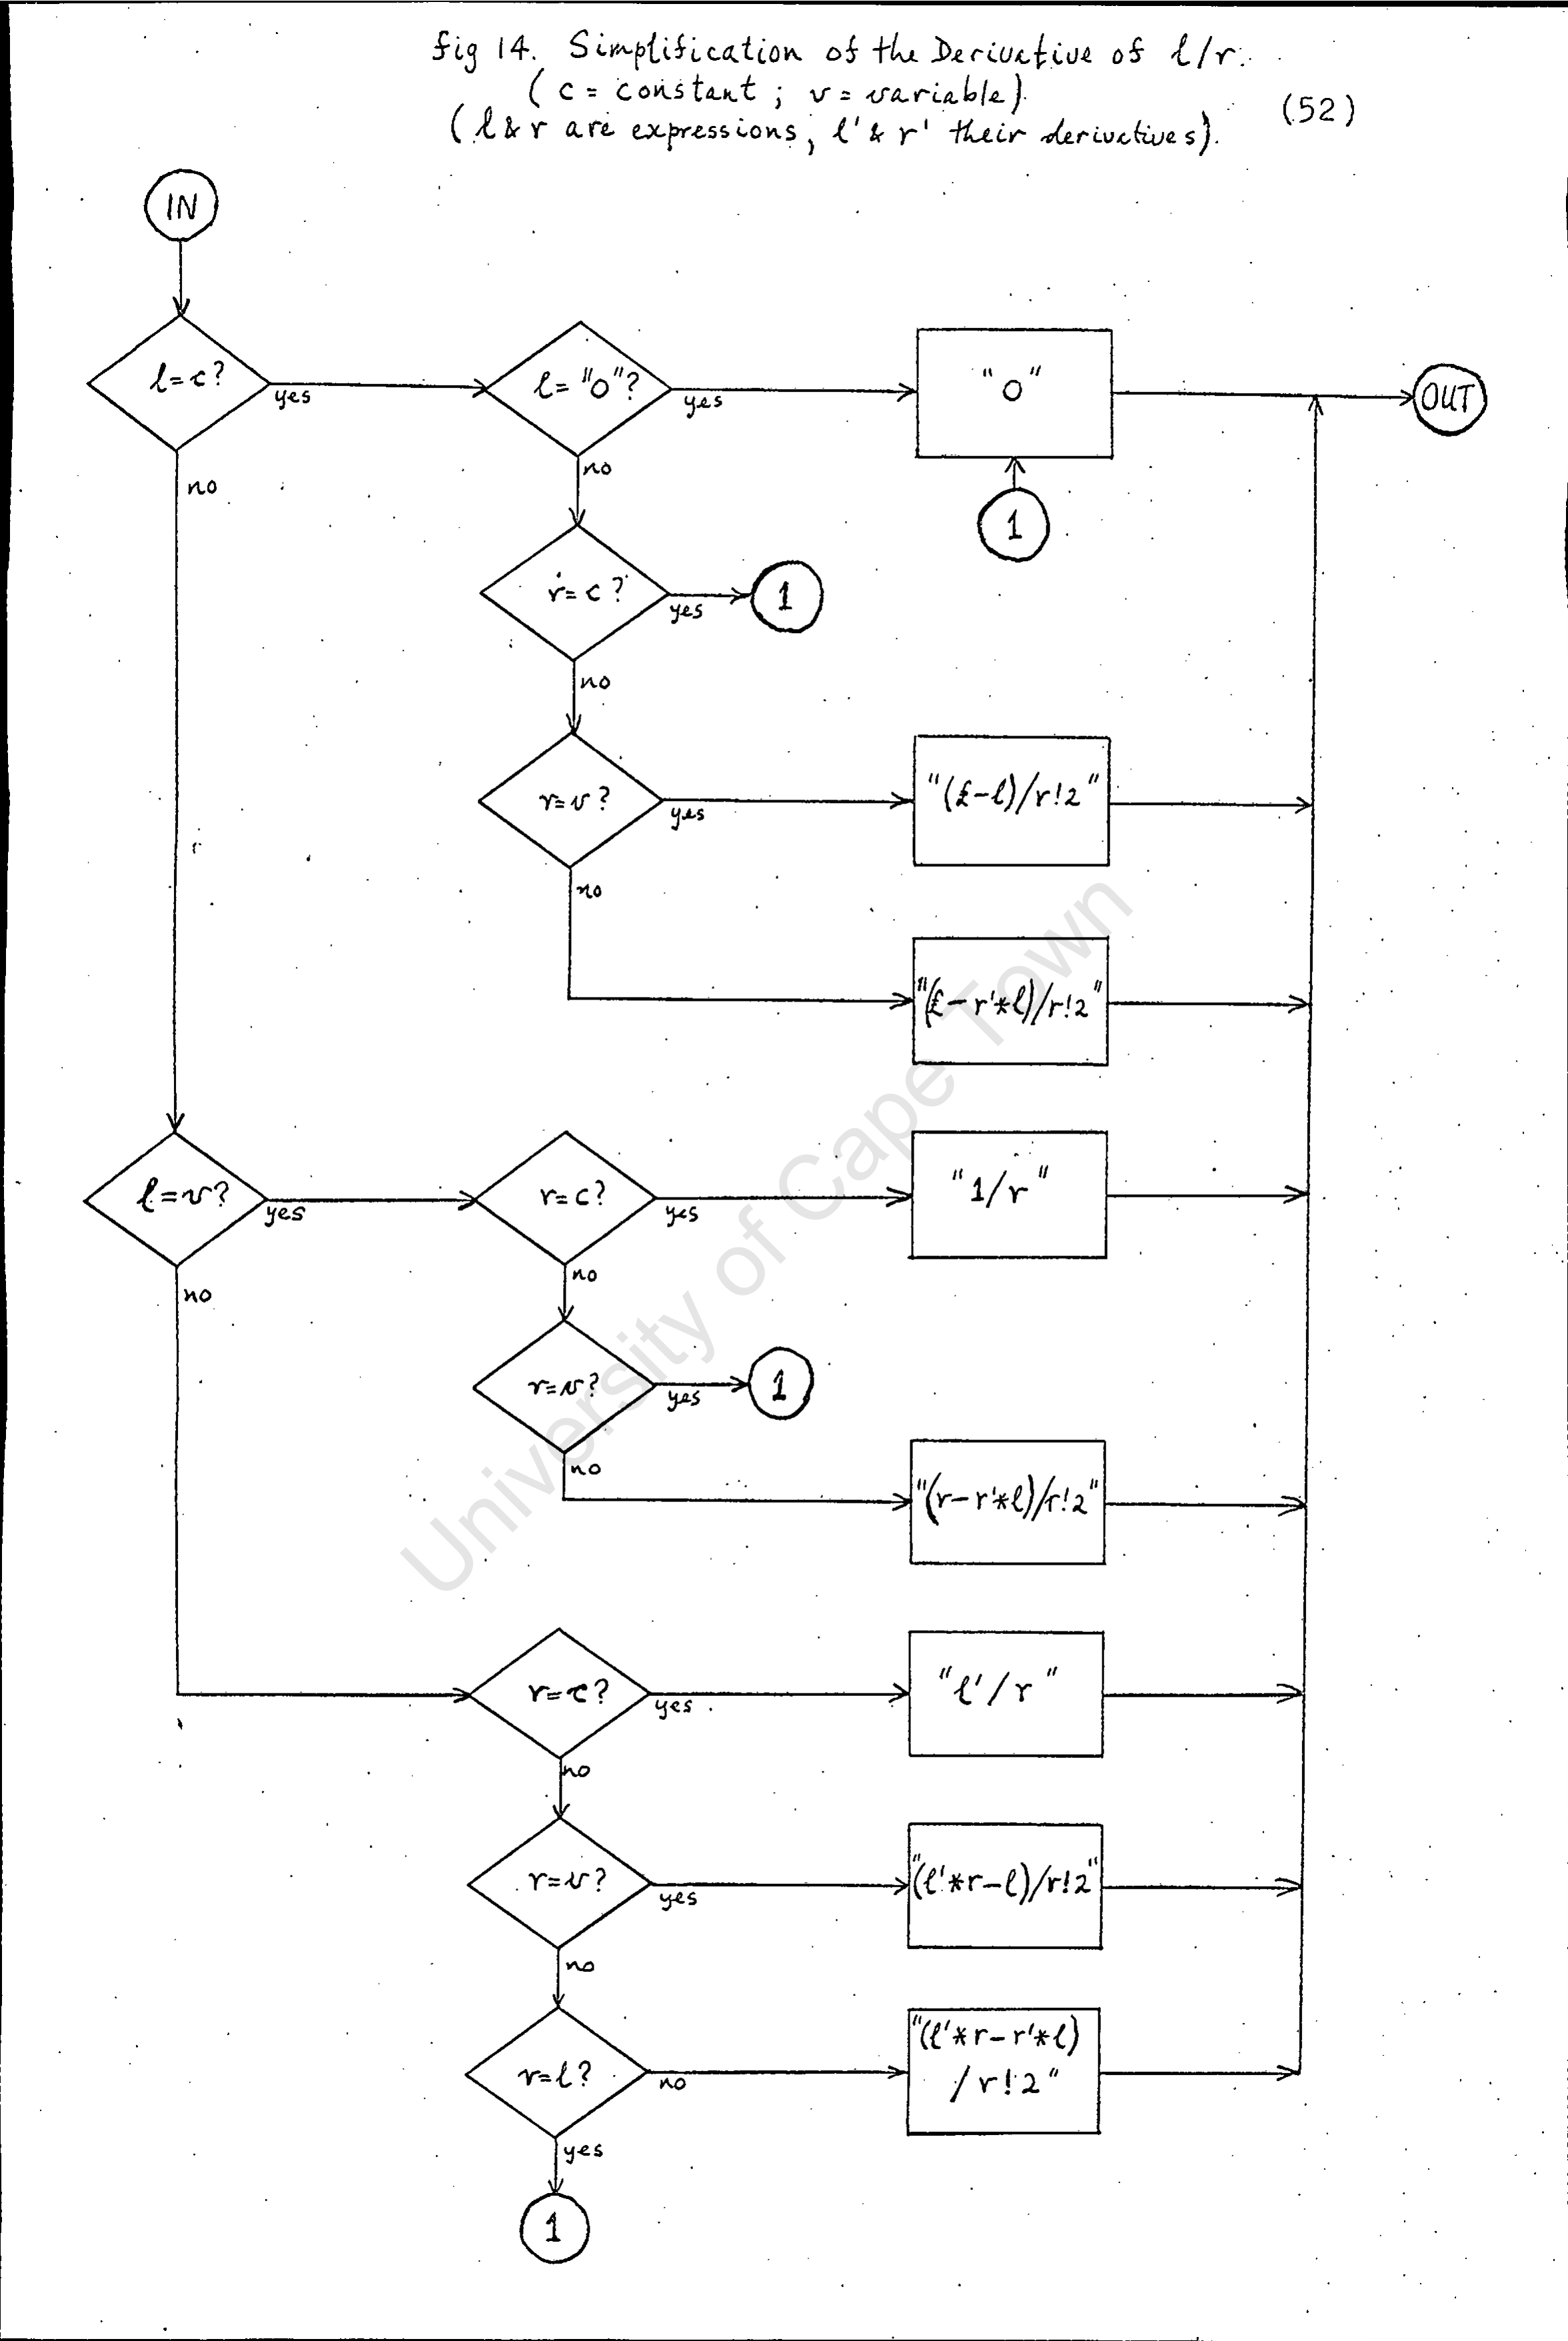 fig 14. Simplification of the Derivative of l/r.
( c = constant ; v = variable).
( l & r are expressions, l' & r' their derivatives).
(52)
IN
l=c?
yes
no
l= "0"?
yes
no
"0"
OUT
1
r=c?
yes
1
no
r=v?
yes
"(£-l)/r!2"
no
"(£-r'*l)/r!2"
l=v?
yes
no
r=c?
yes
"1/r"
no
r=v?
yes
1
no
"(r-r'*l)/r!2"
r=c?
yes
"l'/r"
no
r=v?
yes
"(l'*r-l)/r!2"
no
r=l?
no
"(l'*r-r'*l)
/r!2"
yes
1
University of Cape Town